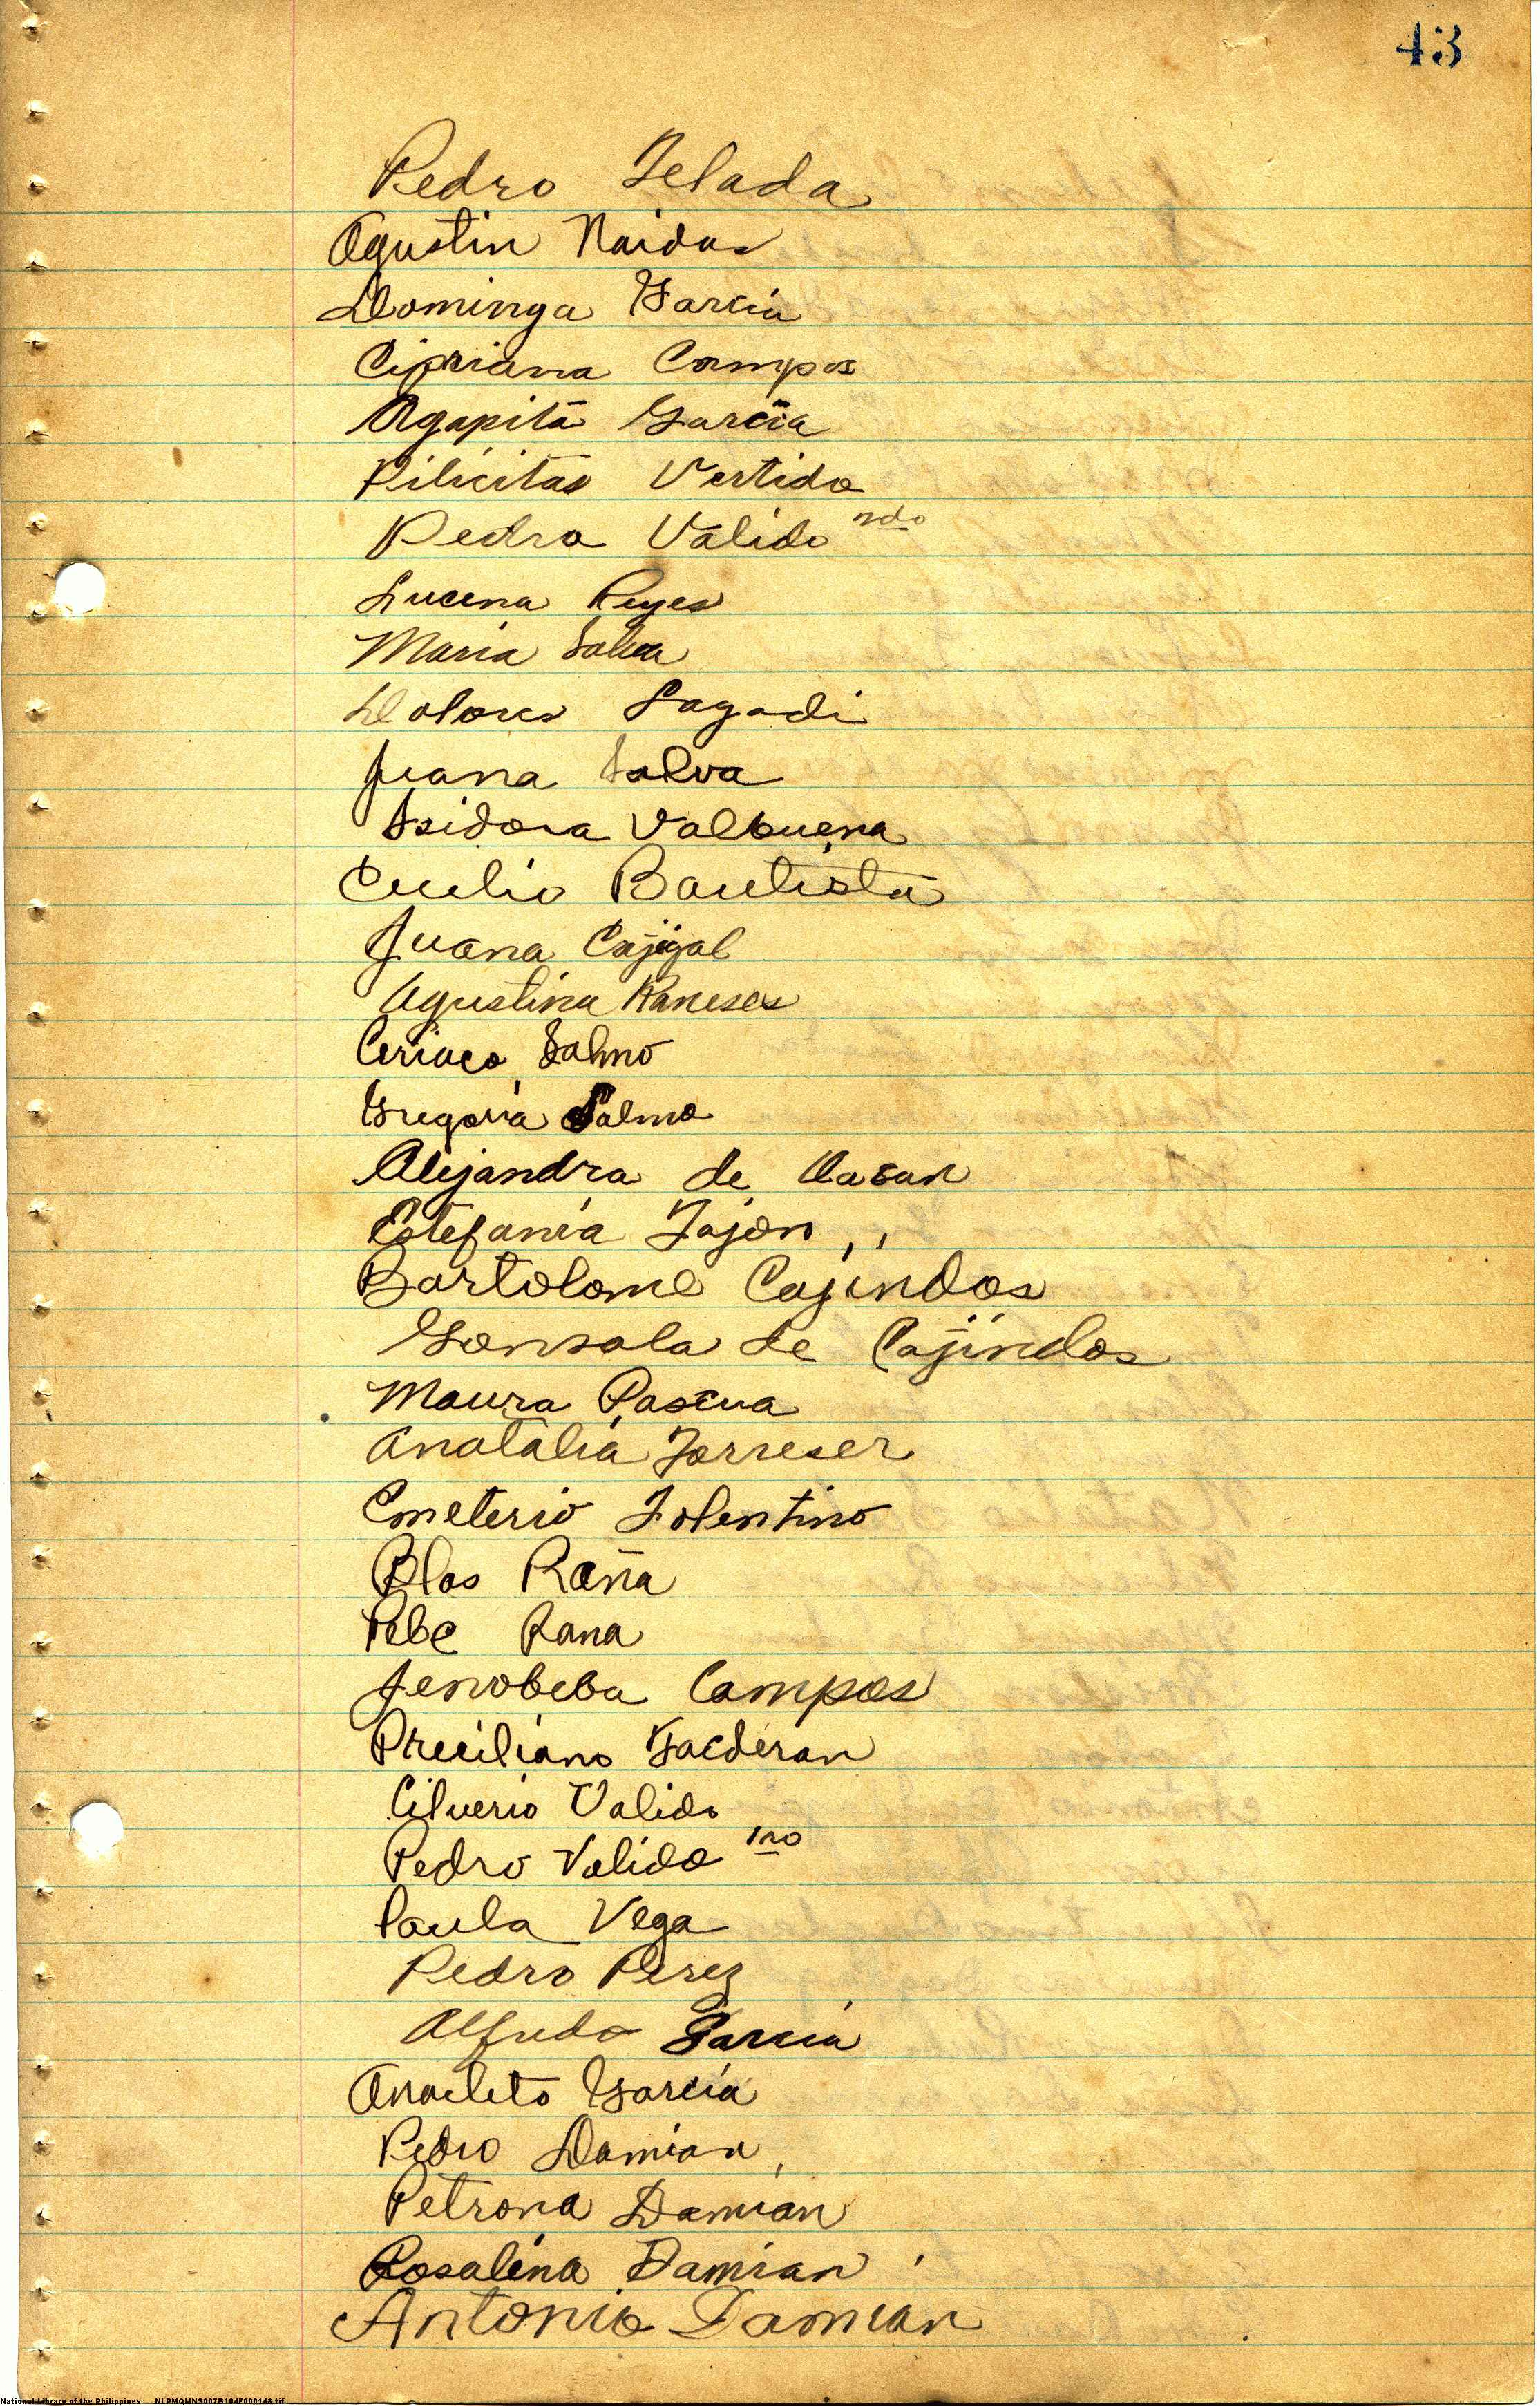 43
Pedro Telada
Agustin Naidas
Dominga Garcia
Cipriana Campos
Agapita Garcia
Pilicitas Vertido
Pedro Valido ndo
Lucena Reyes
Maria Salva
Dolores Pagadi
Juana Salva
Isidora Valbuena
Cecilio Bautista
Juana Cajigal
Agustina Raneses
Ceriaco Salmo
Gregoria Salmo
Alejandra de Dasan
Estefania Tajon
Bartolome Cajindos
Gonsala de Cajindos
Maura Pascua
Anatalia Forreser
Emeterio Tolentino
Blas Raña
Pebe Rana
Jenobeba Campos
Preciliano Galderan
Cilverio Valido
Pedro Valido 1ro
Paula Vega
Pedro Perez
Alfredo Garcia
Anacleto Garcia
Pedro Damian
Petrona Damian
Rosalina Damian
Antonio Damian
National Library of the Philippines NLPMQMNS007B104F000148.tif